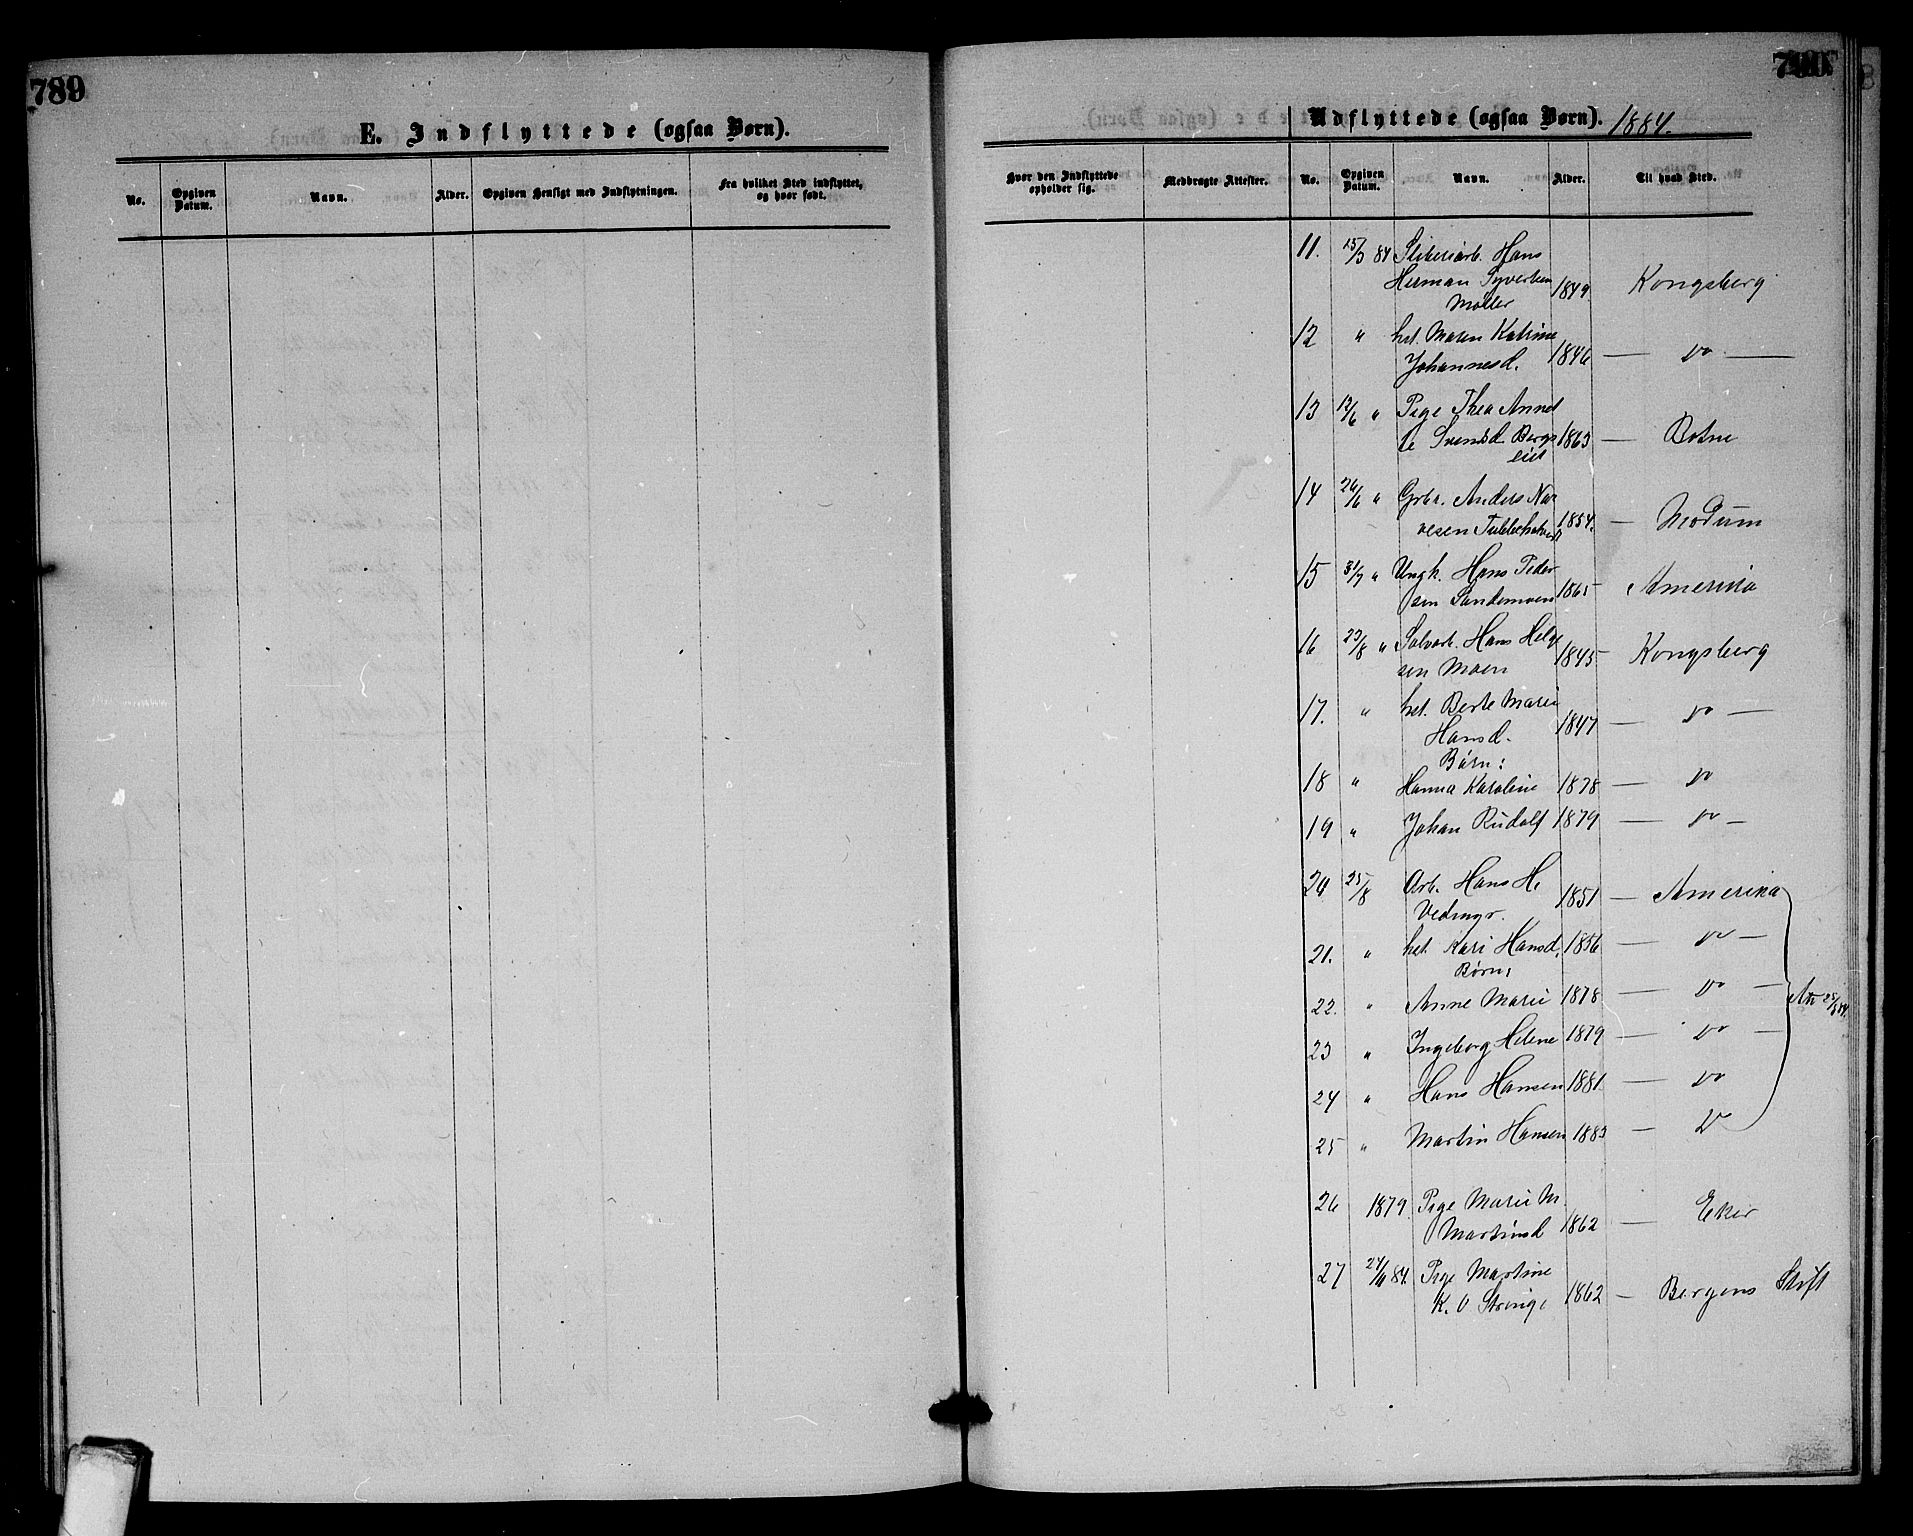 789
E. Indflyttede (ogsaa Børn).
No. Opgiven Datum. Navn. Alder. Opgiven Hensigt med Indflytningen. Fra hvilket Sted indflyttet, og hvor født.
Udflyttede (ogsaa Børn). 1884.
Hvor den Indflyttede opholder sig. Medbragte Attester. No. Opgiven Datum. Navn. Alder. Til hvad Sted.
11. 15/3 84 Sliberiarb. Hans
Herman Syvertsen 1849 Kongsberg
Møller
12 " hst. Maren Katrine
Johannesd. 1846 — do —
13 12/6 " Pige Thea Annet
te Svensd. Bergs 1863 — Botne
eie
14 26/6 " Grba. Anders Nar
vesen 1854. — Modum
15 31/7 " Ungk. Hans Peder
sen Sandemoen 1865 Amerika
16 23/8 " Sølvarb. Hans Helge
sen Moen 1845 Kongsberg
17. " hst. Berte Marie
Hansd. 1847 — do —
Børn:
18 " Hanna Karoline 1878 — do
19 " Johan Rudolf 1879 — do —
20 25/8 Arb. Hans H. 1851 — Amerika
Vedmyr.
21. " hst. Kari Hansd. 1856 — do —
Børn:
22. " Anne Marie 1878 — do — Att 25/8 84.
23 " Ingeborg Helene 1879 — do —
24 " Hans Hansen 1881. — do
25 " Martin Hansen 1883 — do
26 1879. Pige Marie M.
Martinsd 1862 — Eker
27 84. Pige Martine
K. O 1862 — Bergens Stift